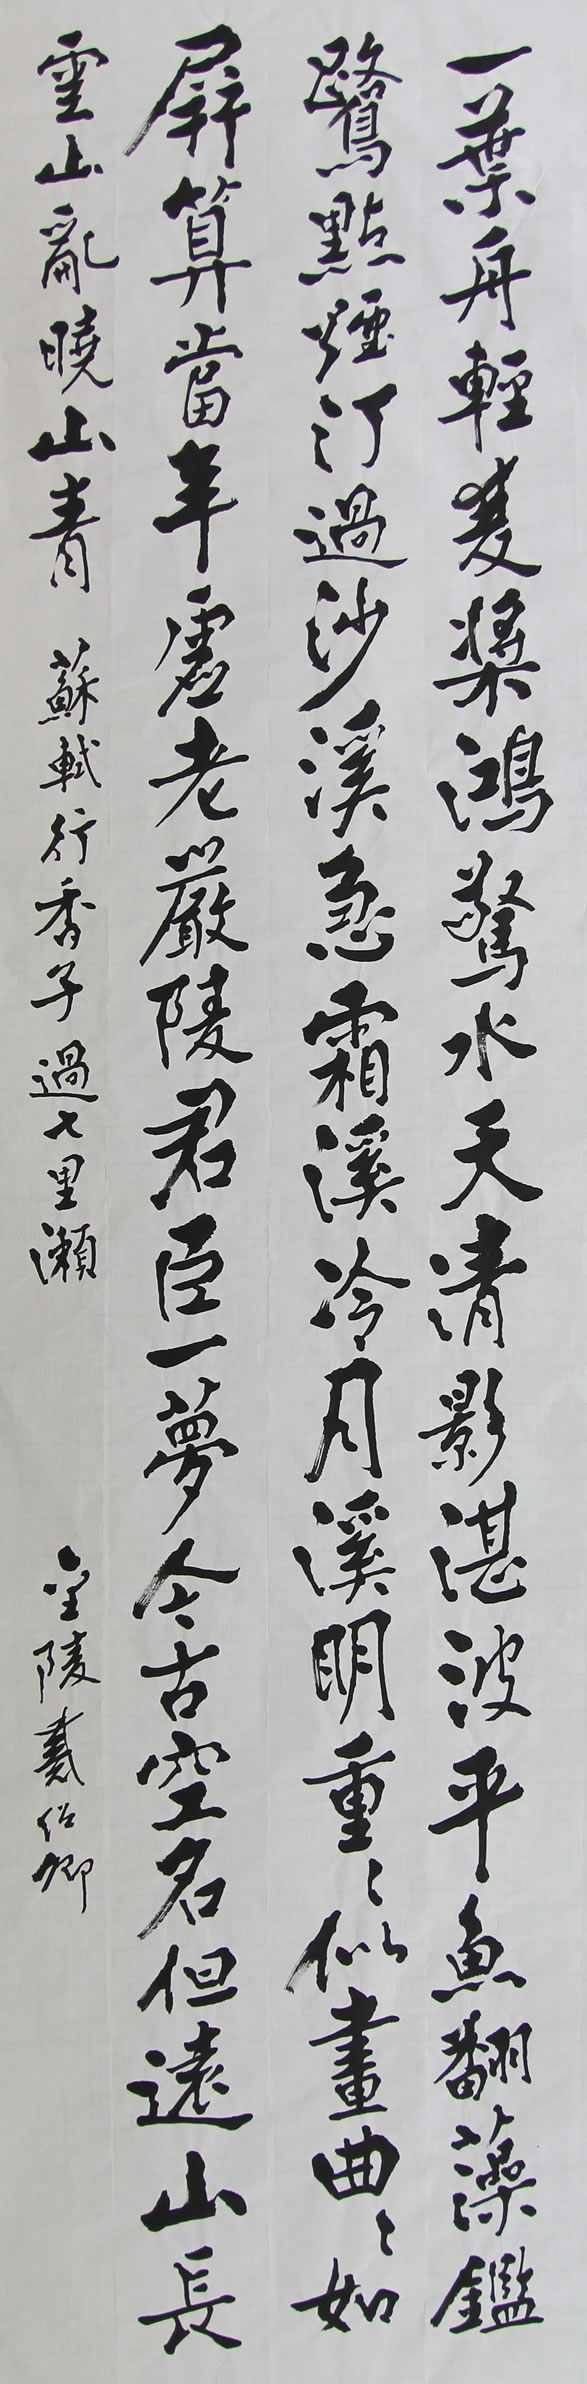 一葉舟輕雙槳鴻驚水天清影湛波平魚翻藻鑑
鷺點煙汀過沙溪急霜溪冷月溪明重〻似畫曲〻如
屏算當年虛老嚴陵君臣一夢今古空名但遠山長
雲山亂曉山青 蘇軾行香子過七里瀨 金陵紹卿